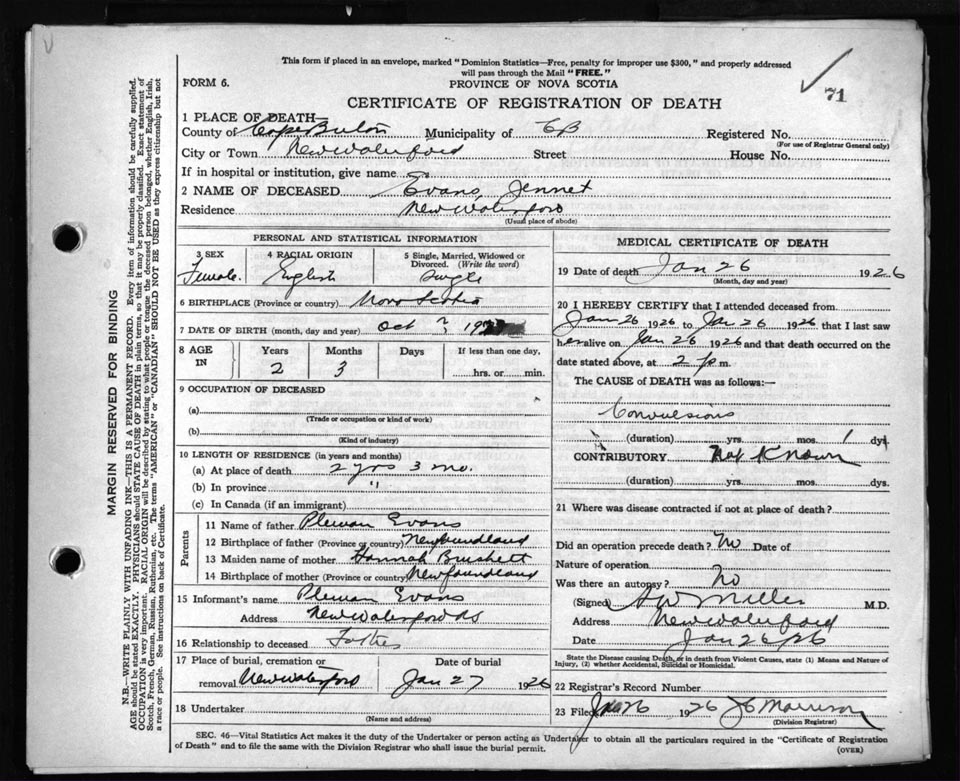 This form if placed in an envelope, marked "Dominion Statistics—Free, penalty for improper use $300," and properly addressed
will pass through the Mail "FREE."
FORM 6.
PROVINCE OF NOVA SCOTIA
71
CERTIFICATE OF REGISTRATION OF DEATH
1 PLACE OF DEATH—
County of Cape Breton Municipality of CB Registered No.
(For use of Registrar General only)
City or Town New Waterford Street House No.
If in hospital or institution, give name
2 NAME OF DECEASED Evans, Jennet
Residence New Waterford
(Usual place of abode)
PERSONAL AND STATISTICAL INFORMATION
3 SEX 4 RACIAL ORIGIN 5 Single, Married, Widowed or
Divorced. (Write the word)
Female. English Single
6 BIRTHPLACE (Province or country) Nova Scotia
7 DATE OF BIRTH (month, day and year) Oct ? 19
8 AGE IN Years Months Days If less than one day,
2 3 hrs. or min.
9 OCCUPATION OF DECEASED
(a)
(Trade or occupation or kind of work)
(b)
(Kind of industry)
10 LENGTH OF RESIDENCE (in years and months)
(a) At place of death 2 yrs 3 mo.
(b) In province "
(c) In Canada (if an immigrant)
Parents
11 Name of father Evans
12 Birthplace of father (Province or country) Newfoundland
13 Maiden name of mother Hannah
14 Birthplace of mother (Province or country) Newfoundland
15 Informant's name Evans
Address New Waterford NS
16 Relationship to deceased Father
17 Place of burial, cremation or Date of burial
removal New Waterford Jan 27 1926
18 Undertaker
(Name and address)
MEDICAL CERTIFICATE OF DEATH
19 Date of death Jan 26 1926
(Month, day and year)
20 I HEREBY CERTIFY that I attended deceased from
Jan 26 1926 to Jan 26 1926 that I last saw
her alive on Jan 26 1926 and that death occurred on the
date stated above, at 2 p m.
The CAUSE of DEATH was as follows:—
Convulsions
(duration) yrs. mos. 1 dys.
CONTRIBUTORY Not Known
(duration) yrs. mos. dys.
21 Where was disease contracted if not at place of death?
Did an operation precede death? No Date of
Nature of operation
Was there an autopsy? No
(Signed) Miller M.D.
Address New Waterford
Date Jan 26/26
State the Disease causing Death, or in death from Violent Causes, state (1) Means and Nature of
Injury, (2) whether Accidental, Suicidal or Homicidal.
22 Registrar's Record Number
23 Filed Jan 26 1926 Morrison
(Division Registrar)
SEC. 46—Vital Statistics Act makes it the duty of the Undertaker or person acting as Undertaker to obtain all the particulars required in the "Certificate of Registration
of Death" and to file the same with the Division Registrar who shall issue the burial permit.
(OVER)
MARGIN RESERVED FOR BINDING
N.B.—WRITE PLAINLY WITH UNFADING INK—THIS IS A PERMANENT RECORD. Every item of information should be carefully supplied.
AGE should be stated EXACTLY. PHYSICIANS should STATE CAUSE OF DEATH in plain terms, so that it may be properly classified. Exact statement of
OCCUPATION is very important. RACIAL ORIGIN will be described by stating to what people or tongue the deceased person belonged, whether English, Irish,
Scotch, French, German, Russian, Ruthenian, etc. The terms "AMERICAN" or "CANADIAN" SHOULD NOT BE USED as they express citizenship but not
a race or people. See instructions on back of Certificate.